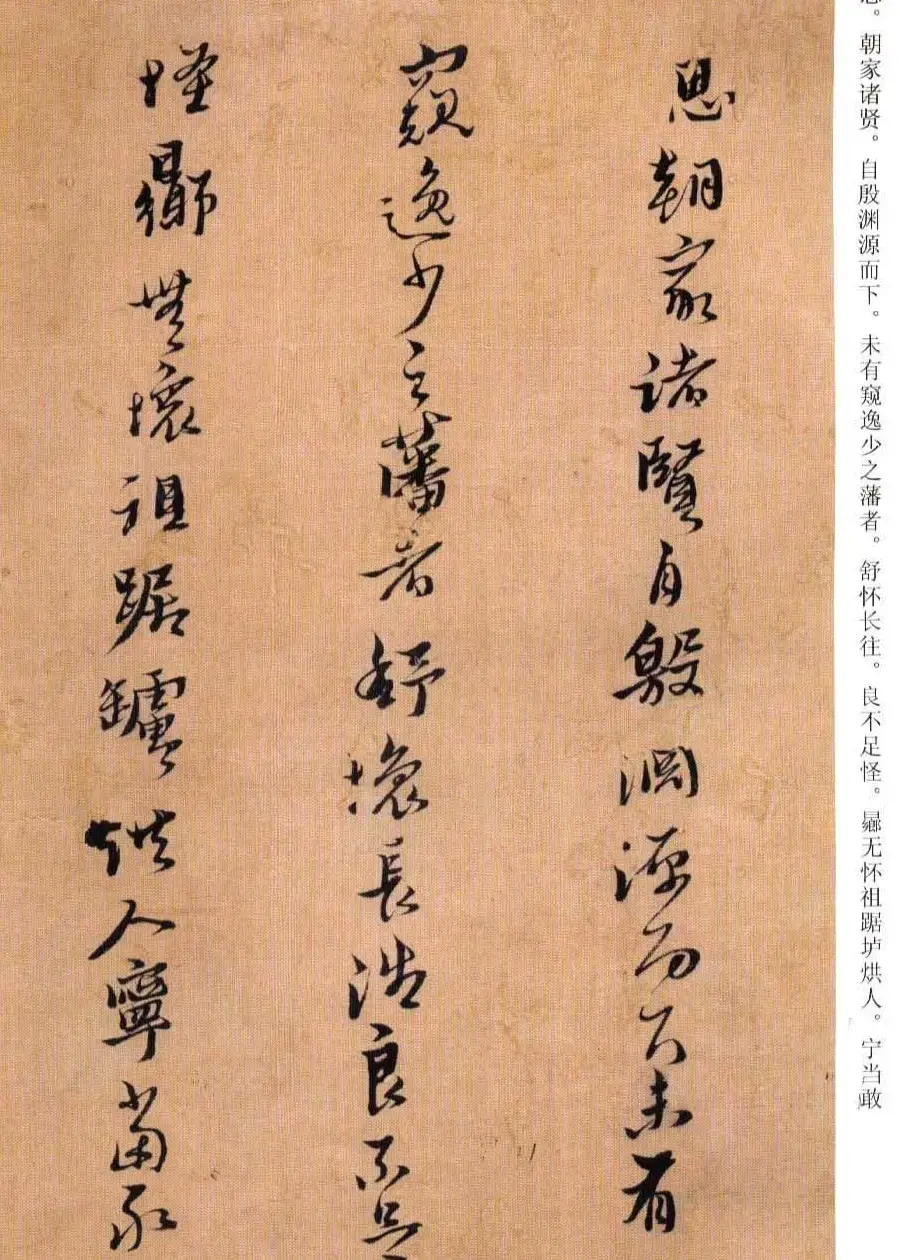 。朝家诸贤。自殷渊源而下。未有窥逸少之藩者。舒怀长往。良不足怪。曏无怀祖踞垆烘人。宁当敢
思朝家諸賢自殷淵源而下未有
窺逸少之藩者舒懷長往良不足
怪曏無懷祖踞罏烘人寧當